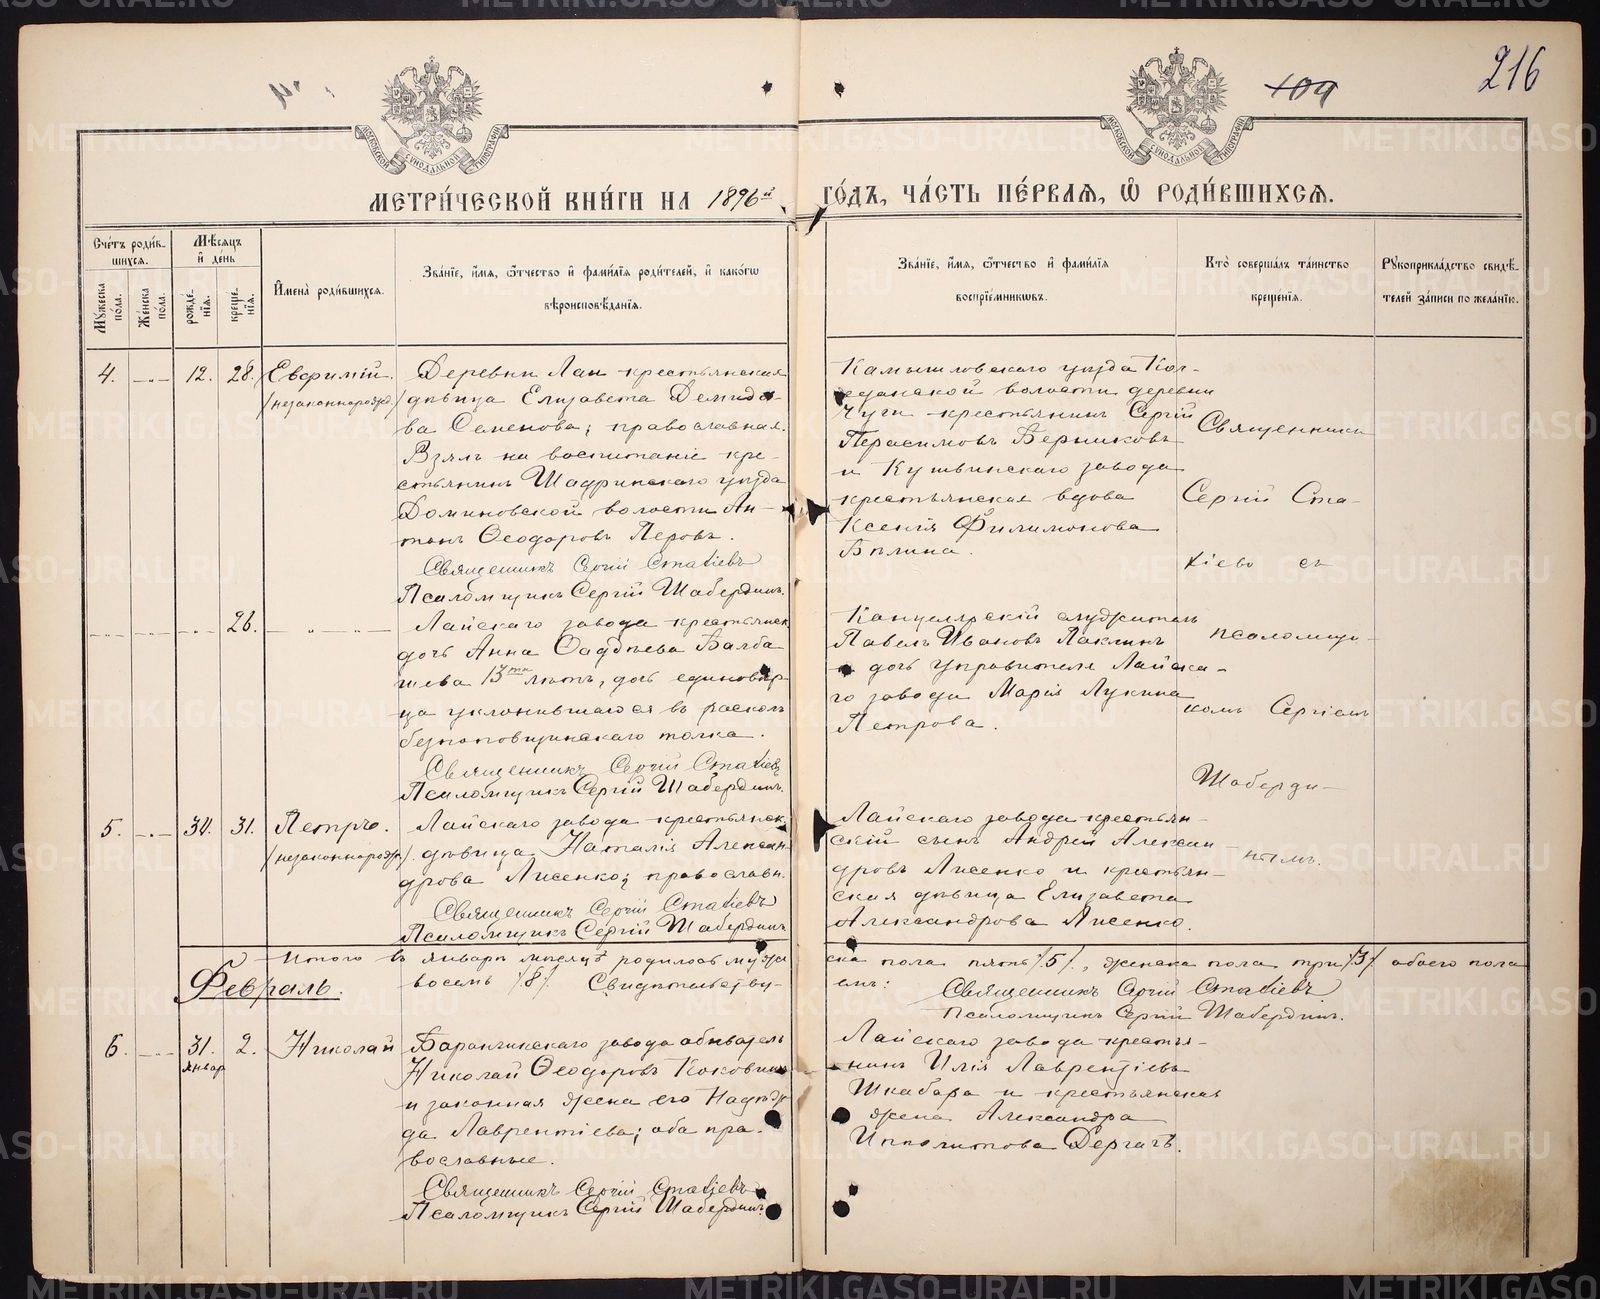 216
109
МОСКОВСКОЙ СѴНОДАЛЬНОЙ ТИПОГРАФІИ
МОСКОВСКОЙ СѴНОДАЛЬНОЙ ТИПОГРАФІИ
МЕТРИ́ЧЕСКОЙ КНИ́ГИ НА 1896й ГО́ДЪ, ЧА́СТЬ ПЕ́РВАЯ, Ѽ РОДИ́ВШИХСЯ.
Сче́тъ роди́в-
шихся.
Му́жеска по́ла.
Же́нска по́ла.
Мѣ́сяцъ и де́нь
рожде́нія.
креще́нія.
И́мена роди́вшихся.
Зва́ніе, и́мя, ѻ́тчество и фами́лія роди́телей, и како́гѡ
вѣроисповѣ́данія.
Зва́ніе, и́мя, ѻ́тчество и фами́лія
воспріе́мниковъ.
Кто̀ соверша́лъ та́инство
креще́нія.
Рукоприкла́дство свидѣ́-
телей за́писи по жела́нію.
4. 12. 28. Евфимій.
/незаконнорожд./
Деревни Лаи крестьянская
дѣвица Елизавета Демидо-
ва Семенова; православная.
Взялъ на воспитаніе кре-
стьянинъ Шадринскаго уѣзда
Долматовской волости Ан-
тонъ Ѳеодоровъ Перовъ.
Священникъ Сергій Статіевъ
Псаломщикъ Сергій Шабердинъ.
Камышловскаго уѣзда Кол-
чеданской волости деревни
Чуги крестьянинъ Сергій
Герасимовъ Берниковъ
и Кушвинскаго завода
крестьянская вдова
Ксенія Филимонова
Бѣлина.
Священникъ
Сергій Ста-
тіевъ съ
псаломщи-
комъ Сергіемъ
Шаберди-
нымъ.
26.
Лайскаго завода крестьянск
дочь Анна Ѳаддѣева Балба
шева 13ти лѣтъ, дочь единовѣр
ца уклонившагося въ расколъ
безпоповщинскаго толка.
Священникъ Сергій Статіевъ
Псаломщикъ Сергій Шабердинъ.
Канцелярскій служитель
Павелъ Ивановъ Паклинъ
и дочь управителя Лайска-
го завода Марія Лукина
Петрова.
5. 30. 31. Петръ.
/незаконнорожд/
Лайскаго завода крестьянск
дѣвица Наталія Алексан
дрова Лисенко; православн.
Священникъ Сергій Статіевъ
Псаломщикъ Сергій Шабердинъ
Лайскаго завода крестьян-
скій сынъ Андрей Алексан-
дровъ Лисенко и крестьян-
ская дѣвица Елизавета
Александрова Лисенко.
Итого въ январѣ мѣсяцѣ родилось муже ска пола пять /5/, женска пола три /3/ обоего пола
восемь /8/. Свидѣтельству- емъ: Священникъ Сергій Статіевъ
Псаломщикъ Сергій Шабердинъ.
Февраль.
6. 31. 2. Николай
январ
Баранчинскаго завода обыватель
Николай Ѳеодоровъ Коковинъ
и законная жена его Надѣж
да Лаврентіева; оба пра-
вославные.
Священникъ Сергій Статіевъ
Псаломщикъ Сергій Шабердинъ
Лайскаго завода крестья-
нинъ Илія Лаврентіевъ
Шкабара и крестьянская
жена Александра
Ипполитова Дергачъ.